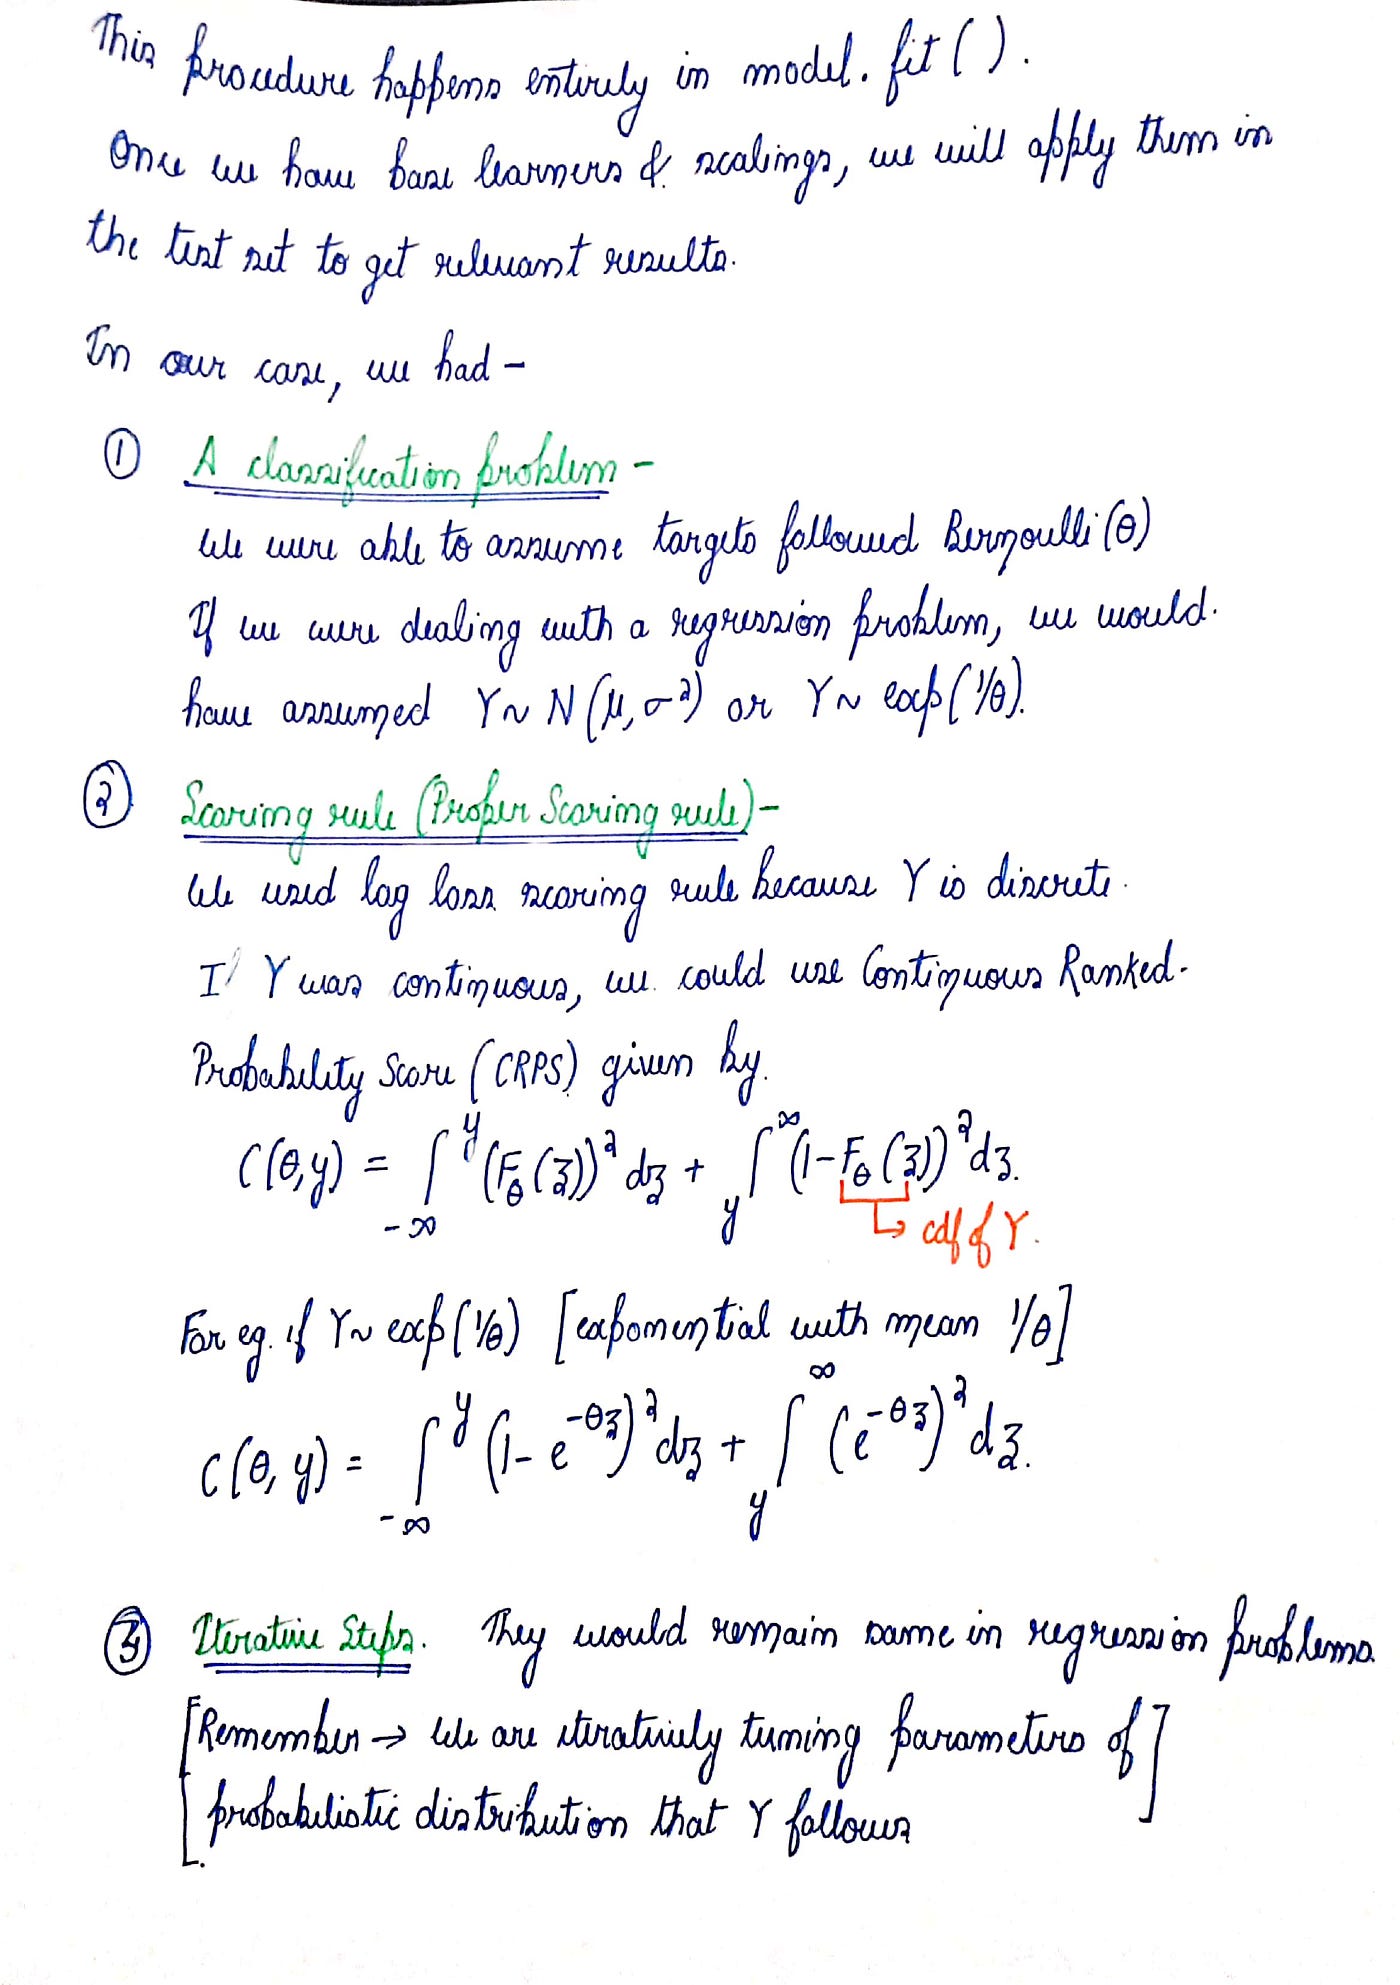 This procedure happens entirely in model.fit().
Once we have base learners & scalings, we will apply them in
the test set to get relevant results.
In our case, we had –
① A classification problem –
We were able to assume targets followed Bernoulli(θ)
If we were dealing with a regression problem, we would.
have assumed Y ~ N(μ, σ²) or Y ~ exp(1/θ).
② Scoring rule (Proper Scoring rule) –
We used log loss scoring rule because Y is discrete.
If Y was continuous, we could use Continuous Ranked.
Probability Score (CRPS) given by.
C(θ,y) = ∫_{-∞}^{y} (F_θ(z))² dz + ∫_{y}^{∞} (1-F_θ(z))² dz.
↳ cdf of Y.
For eg. if Y ~ exp(1/θ) [exponential with mean 1/θ]
C(θ, y) = ∫_{-∞}^{y} (1-e^{-θz})² dz + ∫_{y}^{∞} (e^{-θz})² dz.
③ Iterative Steps. They would remain same in regression problems.
[Remember → We are iteratively tuning parameters of
probabilistic distribution that Y follows]